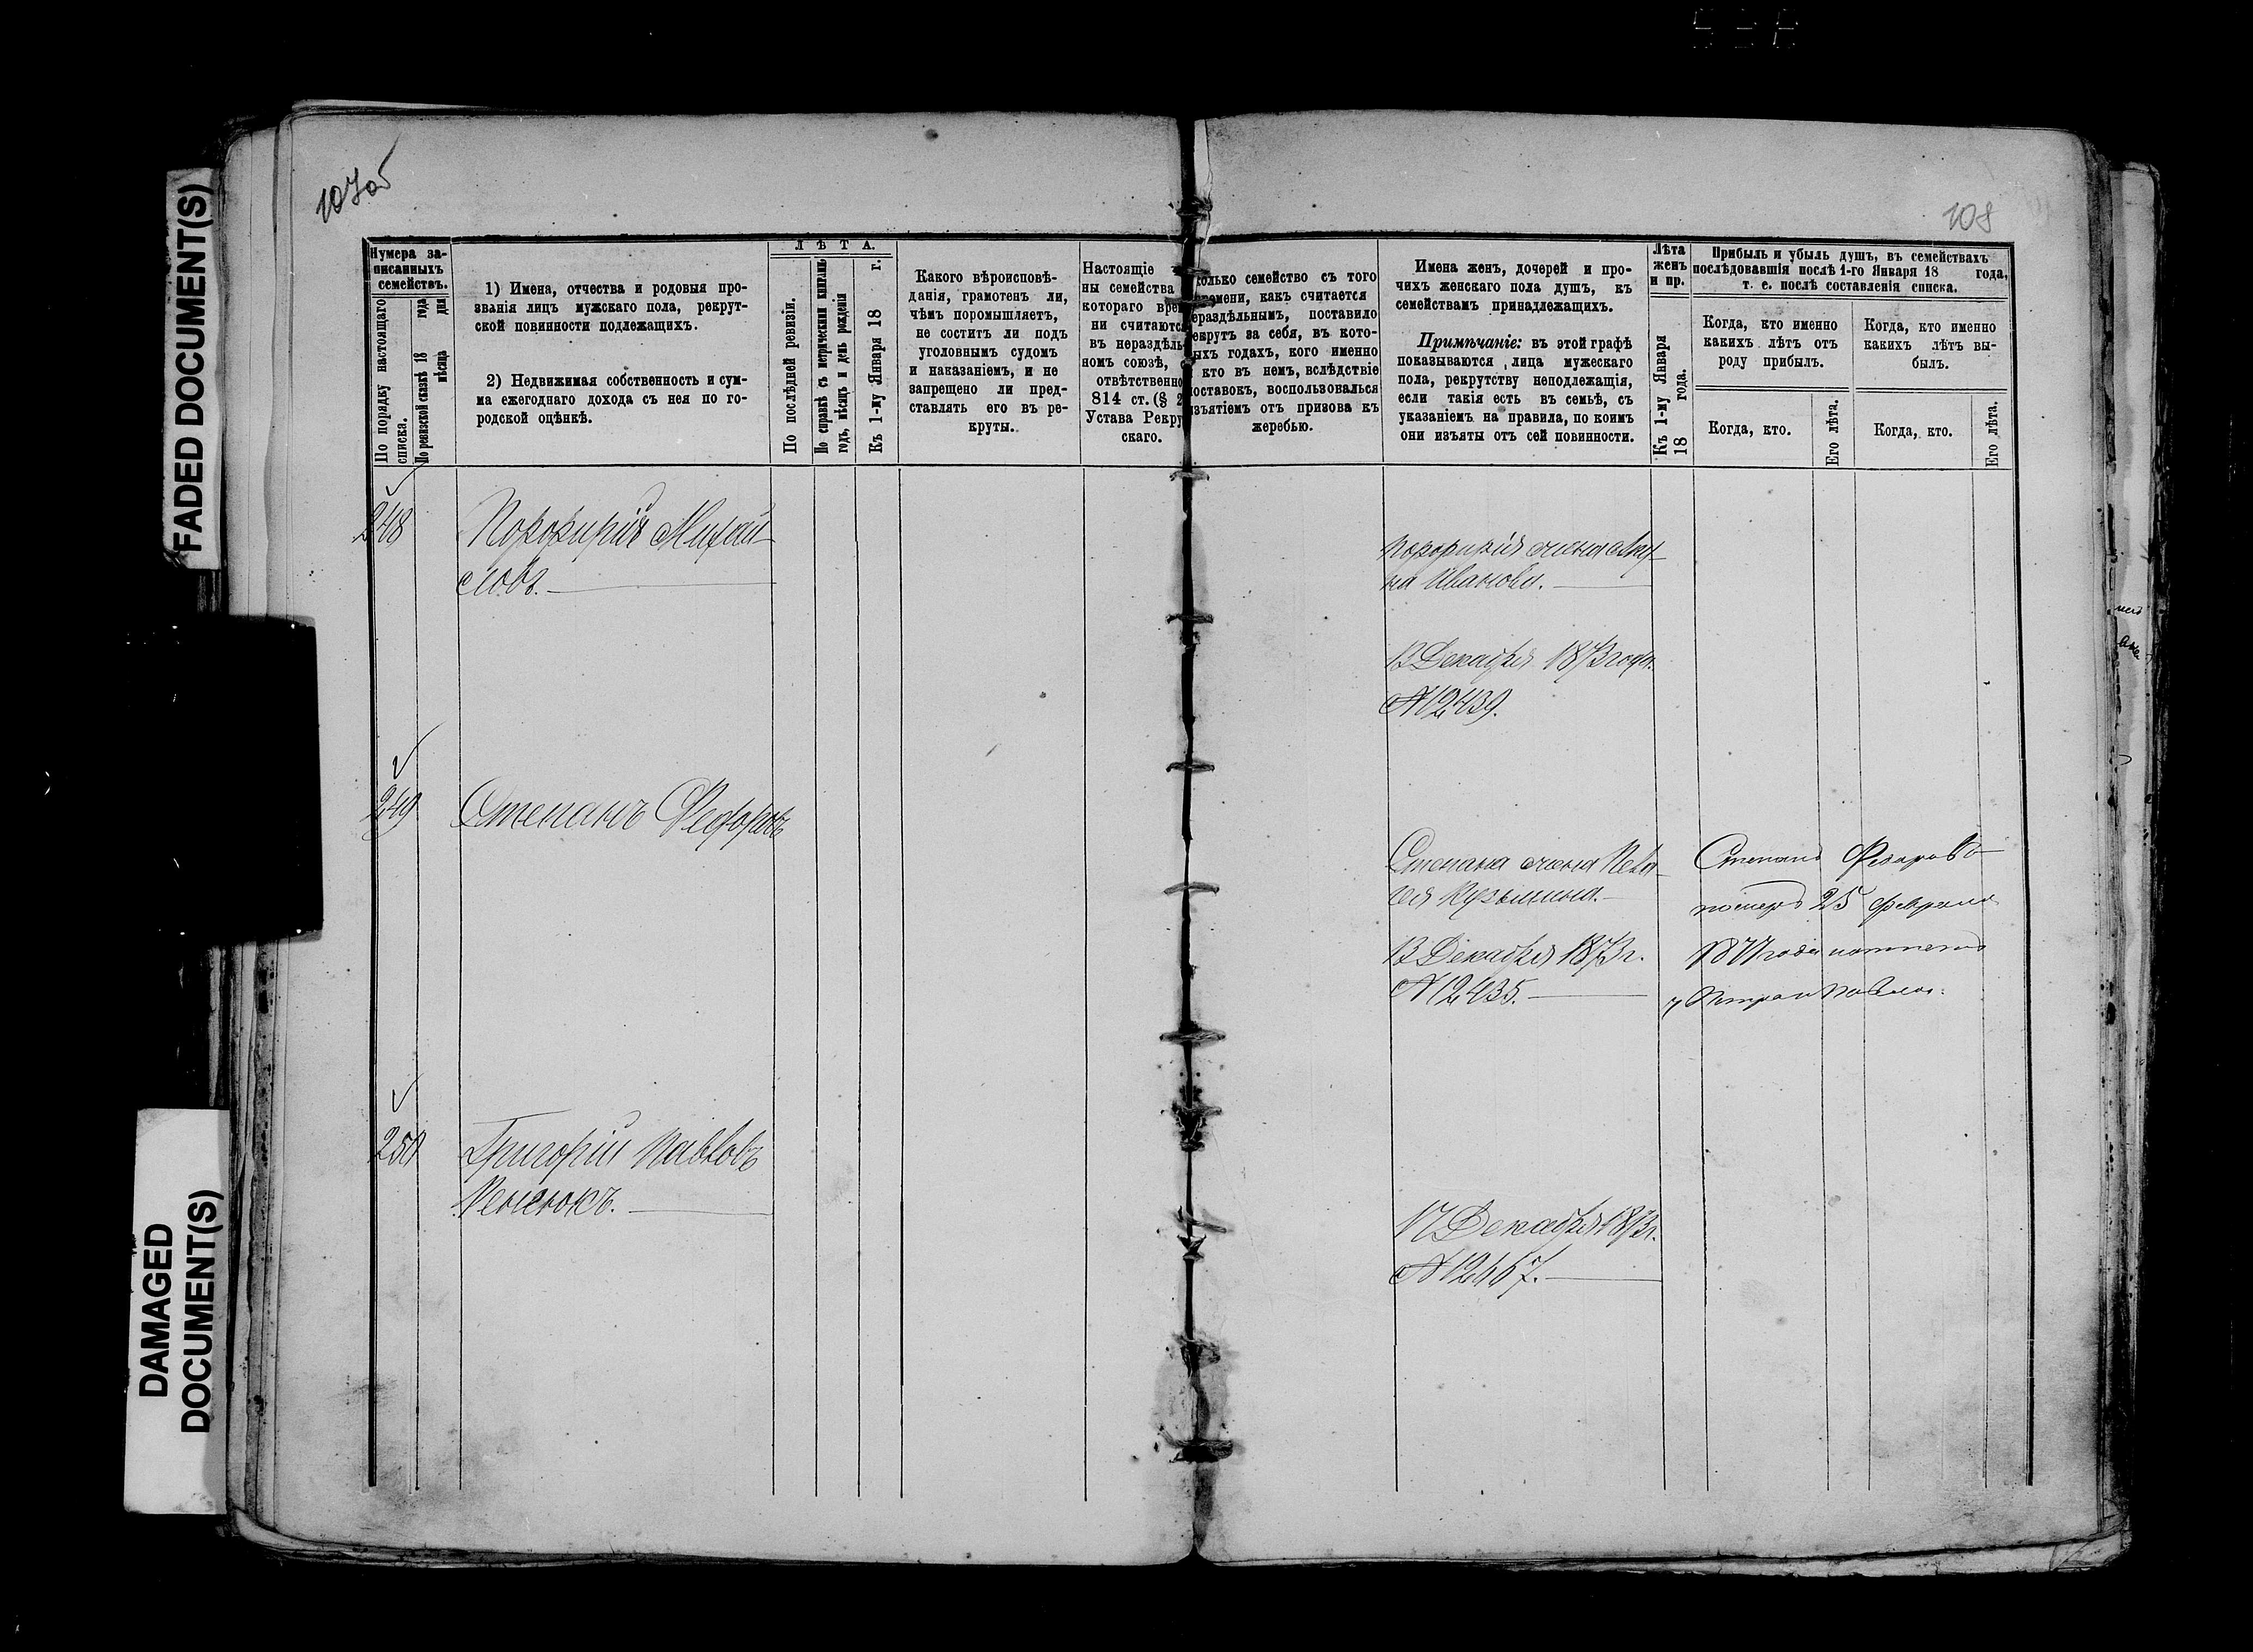 FADED DOCUMENT(S)
DAMAGED
DOCUMENT(S)
107об
108
Нумера за-
писанныхъ
семействъ.
По порядку настоящаго
списка.
По ревизской сказкѣ 18 года
мѣсяца дня
1) Имена, отчества и родовыя про-
званія лицъ мужскаго пола, рекрут-
ской повинности подлежащихъ.
2) Недвижимая собственность и сум-
ма ежегоднаго дохода съ нея по го-
родской оцѣнкѣ.
ЛѢТА.
По послѣдней ревизіи.
По справкѣ съ метрическими книгами
годъ, мѣсяцъ и день рожденія
Къ 1-му Января 18 г.
Какого вѣроисповѣ-
данія, грамотенъ ли,
чѣмъ поромышляетъ,
не соститъ ли подъ
уголовнымъ судомъ
и наказаніемъ, и не
запрещено ли пред-
ставлять его въ ре-
круты.
Настоящіе
ны семейства
котораго врем
ни считаютс
въ нераздѣль
номъ союзѣ,
отвѣтственно
814 ст. (§ 2
Устава Рекру
скаго.
колько семейство съ того
ремени, какъ считается
нераздѣльнымъ, поставило
рекрутъ за себя, въ кото-
рыхъ годахъ, кого именно
кто въ немъ, вслѣдствіе
поставокъ, воспользовался
изъятіемъ отъ призова къ
жеребью.
Имена женъ, дочерей и про-
чихъ женскаго пола душъ, къ
семействамъ принадлежащихъ.
Примѣчаніе: въ этой графѣ
показываются лица мужескаго
пола, рекрутству неподлежащія,
если такія есть въ семьѣ, съ
указаніемъ на правила, по коимъ
они изъяты отъ сей повинности.
Лѣта
женъ
и пр.
Къ 1-му Января
18 года.
Прибыль и убыль душъ, въ семействахъ
послѣдовавшія послѣ 1-го Января 18 года,
т. е. послѣ составленія списка.
Когда, кто именно
какихъ лѣтъ отъ
роду прибылъ.
Когда, кто именно
какихъ лѣтъ вы-
былъ.
Когда, кто.
Его лѣта.
Когда, кто.
Его лѣта.
248
Порфирій Михай-
ловъ.
Порфирія жена
Иванова.
13 Декабря 1873 года.
№ 12439.
249
Степанъ Федоровъ
Степана жена Пела-
гея Кузьмина.
13 Декабря 1873 г.
№ 12435.
Степанъ Федоровъ
померъ 25 февраля
года
Петра и Павла.
250
Григорій Павловъ
17 Декабря 1873 г.
№ 12467.